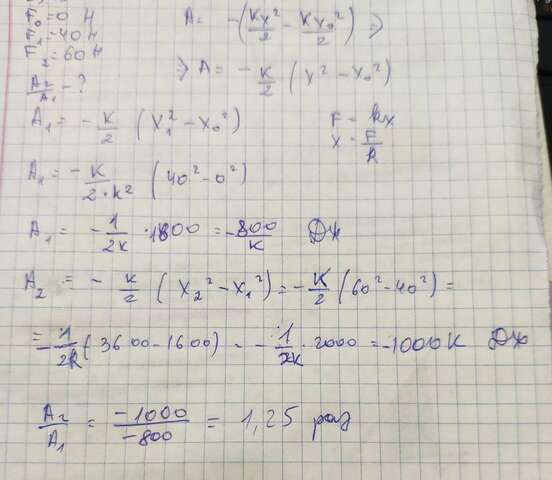 F₀=0 H
F₁=40 H
F₂=60 H
A₂/A₁ - ?
A = -(kx²/2 - kx₀²/2) ⇒
⇒ A = - k/2 (x² - x₀²)
A₁ = - k/2 (x₁² - x₀²)
F = kx
x = F/k
A₁ = - k/(2·k²) (40² - 0²)
A₁ = - 1/2k · 1600 = -800/k Дж
A₂ = - k/2 (x₂² - x₁²) = - k/2 (60² - 40²) =
= - 1/2k (3600 - 1600) = - 1/2k · 2000 = -1000k Дж
A₂/A₁ = -1000/-800 = 1,25 раз